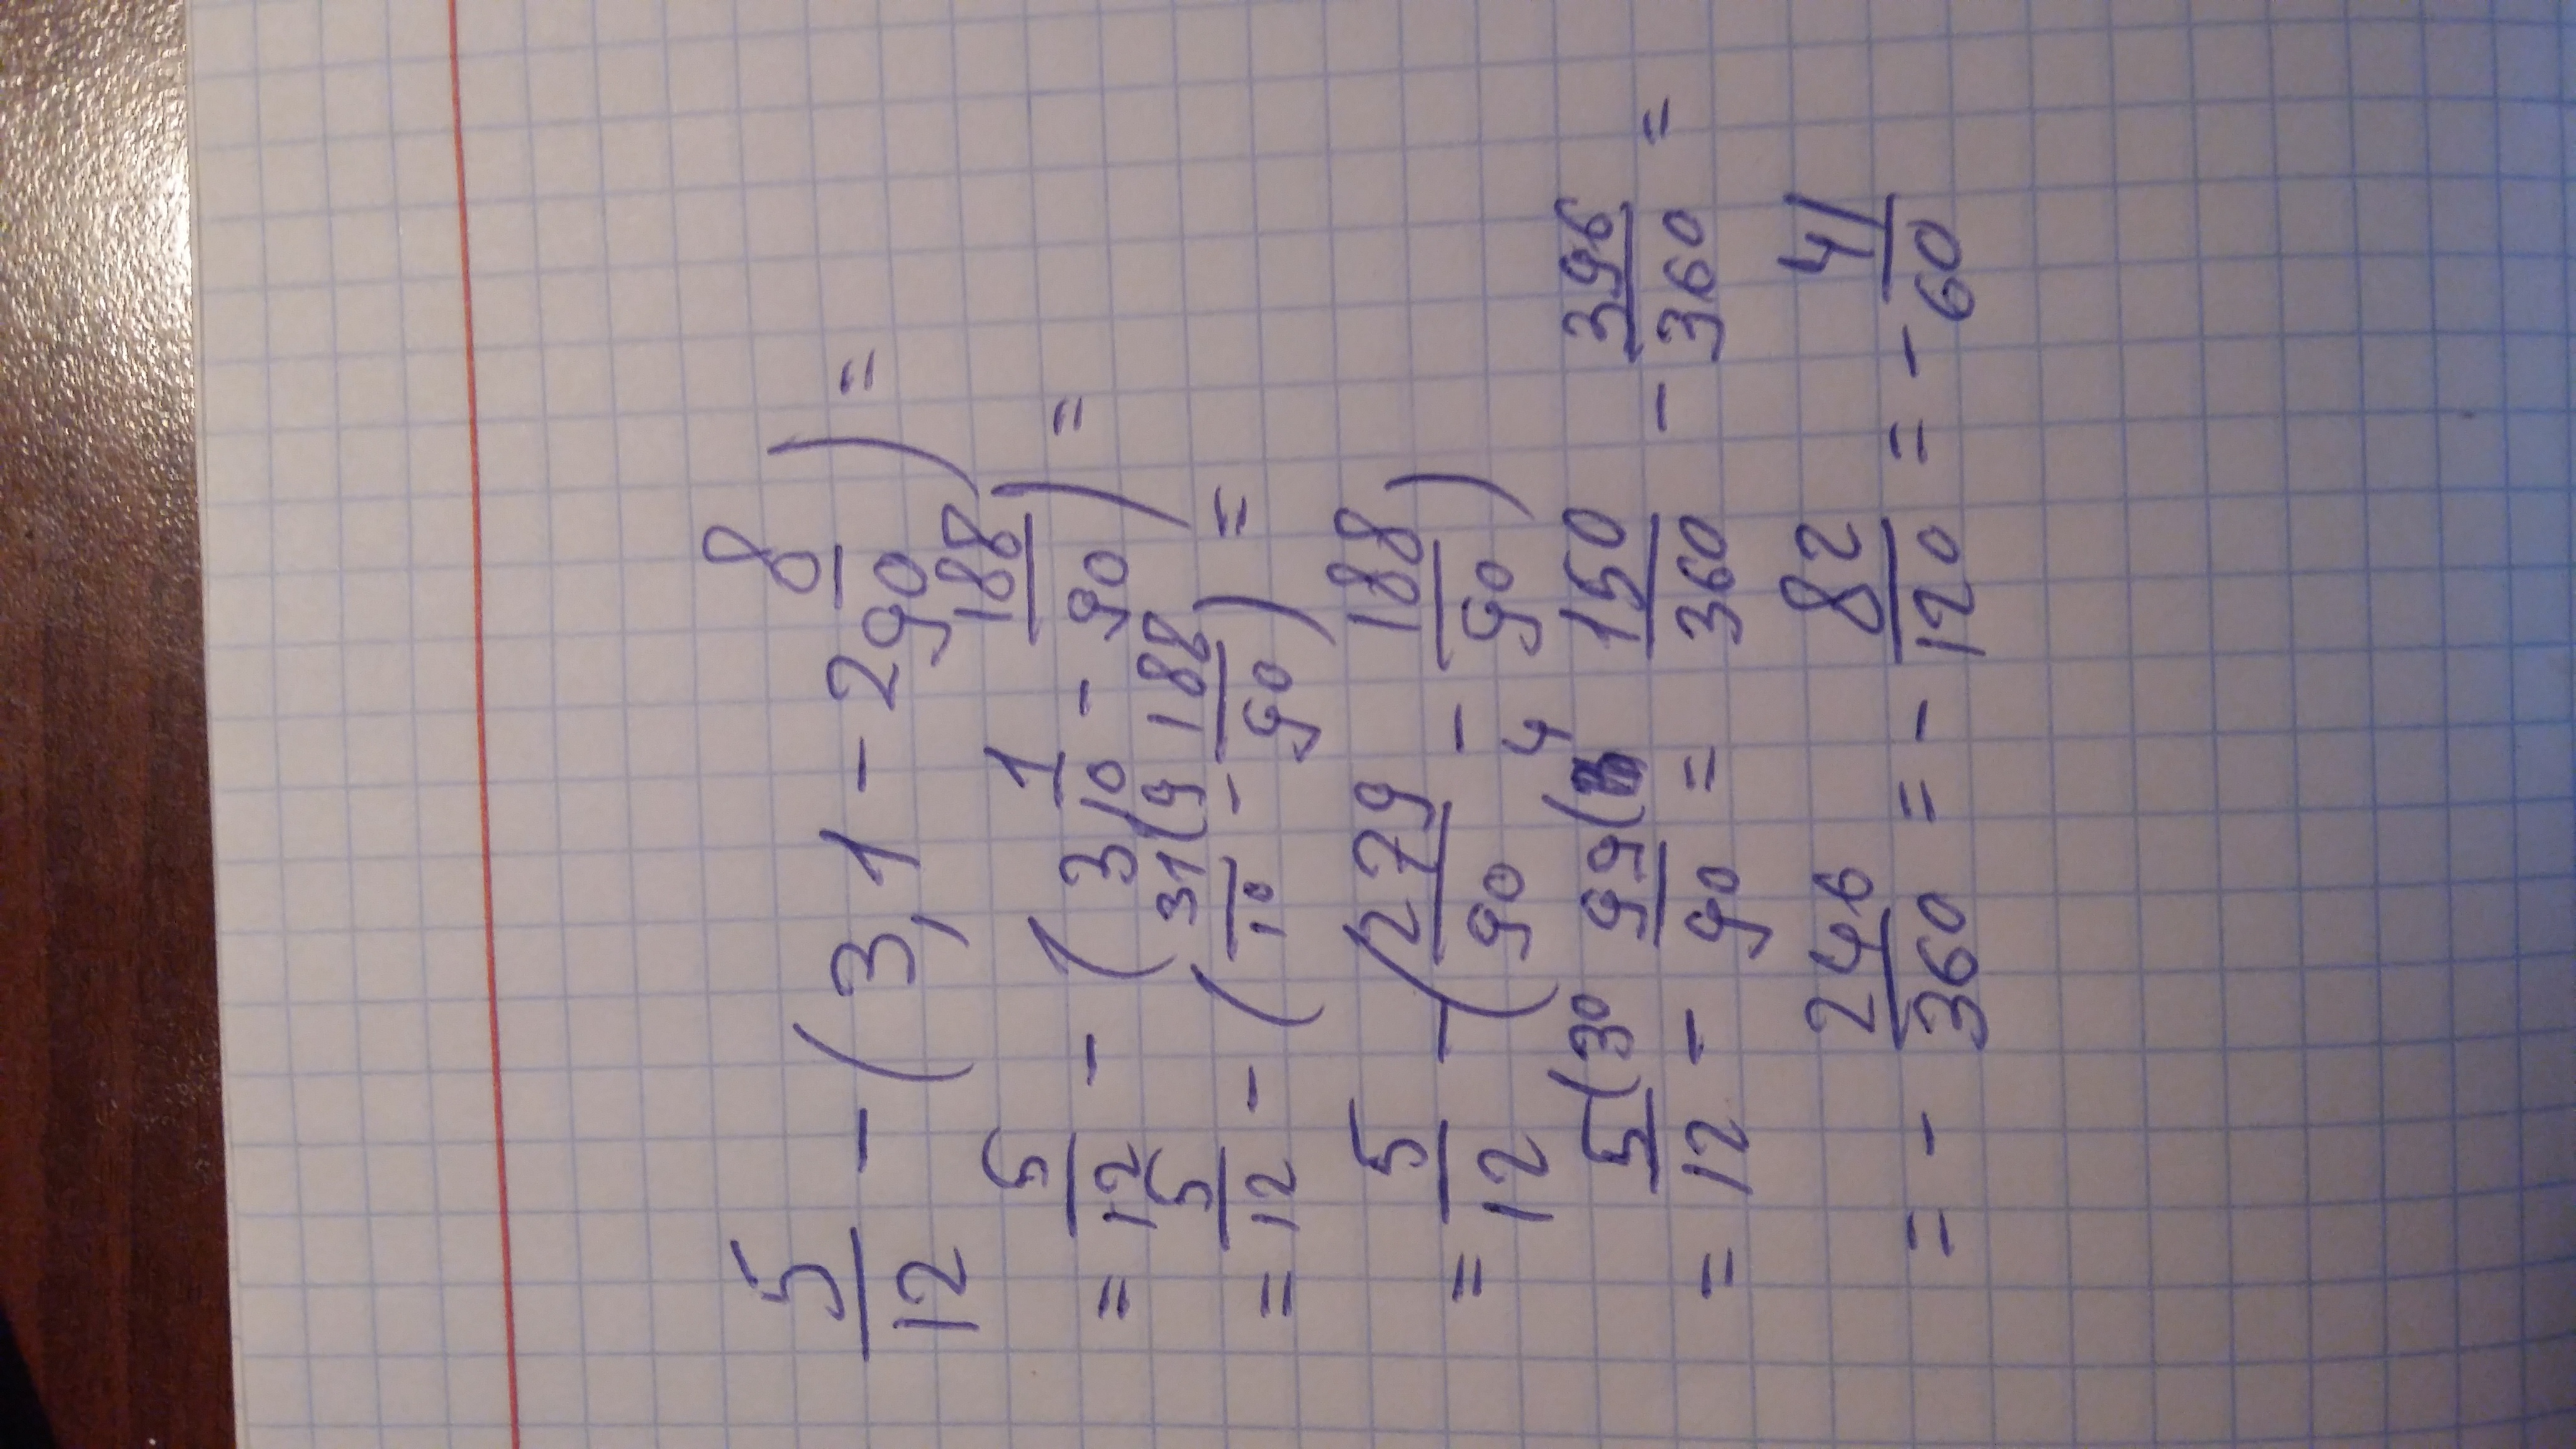 5/12 - (3,1 - 2 8/90) =
= 5/12 - (3 1/10 - 188/90) =
= 5/12 - (31(9/10 - 188/90) =
= 5/12 - (279/90 - 188/90)
= 5(30/12 - 99(4/90 = 150/360 - 396/360 =
= - 246/360 = - 82/120 = - 41/60